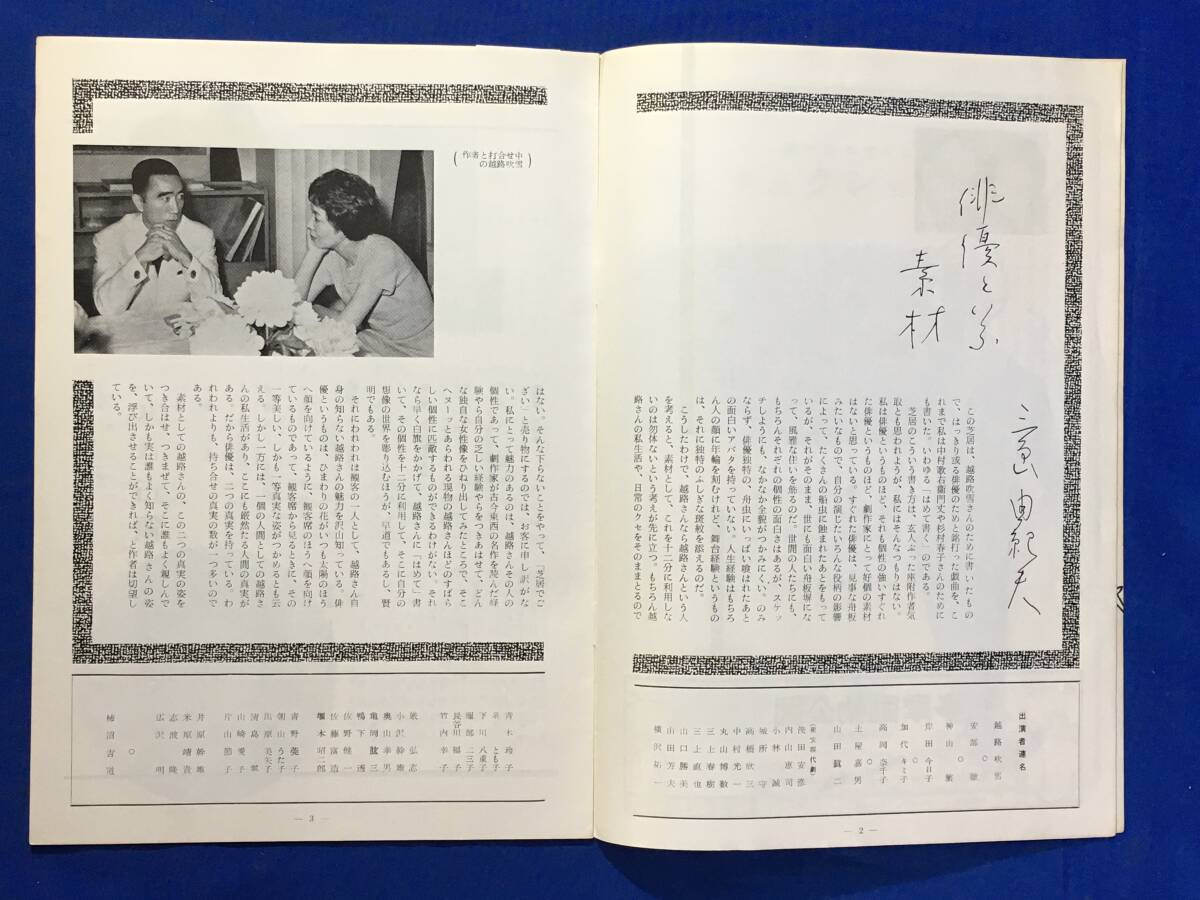 俳優といふ
素材
三島由紀夫
この芝居は、越路吹雪さんのために書いたもの
で、はっきり或る俳優のためと銘打った戯曲を、こ
れまで私は中村歌右衛門丈や杉村春子さんのために
も書いた。いわゆる「はめて書く」のである。
芝居のこういう書き方は、玄人ぶった座附作者気
取とも思われようが、私にはそんなつもりはない。
私は俳優というものほど、それも個性の強いすぐれ
た俳優というものほど、劇作家にとって好個の素材
はないと思っている。すぐれた俳優は、見事な舟板
みたいなもので、自分の演じたいろんな役柄の影響
によって、たくさんの船虫に蝕まれたあとをもって
いるが、それがそのまま、世にも面白い舟板塀にな
って、風雅な住いを飾るのだ。世間の人たちにも、
もちろんそれぞれの個性の面白さはあるが、スケッ
チしようにも、なかなか全貌がつかみにくい。のみ
ならず、俳優独特の、舟虫にいっぱい喰はれたあと
の面白いアバタを持っていない。人生経験はもちろ
ん人の顔に年輪を刻むけれど、舞台経験というもの
は、それに独特のふしぎな斑紋を添えるのだ。
こうしたわけで、越路さんなら越路さんという人
を考えると、素材として、これを十二分に利用しな
いのは勿体ないという考えが先に立つ。もちろん越
路さんの私生活や、日常のクセをそのままとるので
出演者連名
越路吹雪
○
安部 徹
○
神山 繁
○
岸田今日子
○
加代キミ子
○
高岡奈千子
○
土屋嘉男
○
山田真二
内山恵司
小林 誠
城所 守
高橋欣三
中村光一
丸山博数
三上春樹
三上直也
山口勝美
山田芳夫
横沢祐一
― 2 ―
(作者と打合せ中
の越路吹雪)
はない。そんな下らないことをやって、「芝居でご
ざい」と売り物にするのでは、お客に申し訳がな
い。私にとって魅力のあるのは、越路さんその人の
個性であって、劇作家が古今東西の名作を読んだ経
験やら自分の乏しい経験やらをつきあはせて、どん
な独自な女性像をひねり出してみたところで、そこ
へヌーッとあらわれる現物の越路さんほどのすばら
しい個性に匹敵するものができるわけがない。それ
なら早く白旗をかかげて、越路さんに「はめて」書
いて、その個性を十二分に利用して、そこに自分の
想像の世界を彫り込むほうが、早道でもあるし、賢
明でもある。
それにわれわれは観客の一人として、越路さん自
身の知らない越路さんの魅力を沢山知っている。俳
優というものは、ひまわりの花がいつも太陽のほう
へ顔を向けているように、観客席のほうへ顔を向け
ているものであって、観客席から見るときに、その
一等美しい、しかも一等真実な姿がつかめるとも云
える。しかし一方には、一個の人間としての越路さ
んの私生活があり、ここにも厳然たる人間の真実が
ある。だから俳優は、二つの真実を持っている。わ
れわれよりも、持ち合せの真実の数が一つ多いので
ある。
素材としての越路さんの、この二つの真実の姿を
つき合はせ、つきまぜて、そこに誰もよく親しんで
いて、しかも実は誰もよく知らない越路さんの姿
を、浮び出させることができれば、と作者は切望し
ている。
青木玲子
下川八重子
堀部二三子
長谷川福子
竹内幸子
○
小沢幹雄
奥山幸男
亀岡肱三
鴨下 透
佐野健一
佐藤富造
堀本昭二郎
○
山崎愛子
片山節子
○
井原幹雄
米原靖貴
志波 隆
広沢 明
○
柿沼吉道
― 3 ―